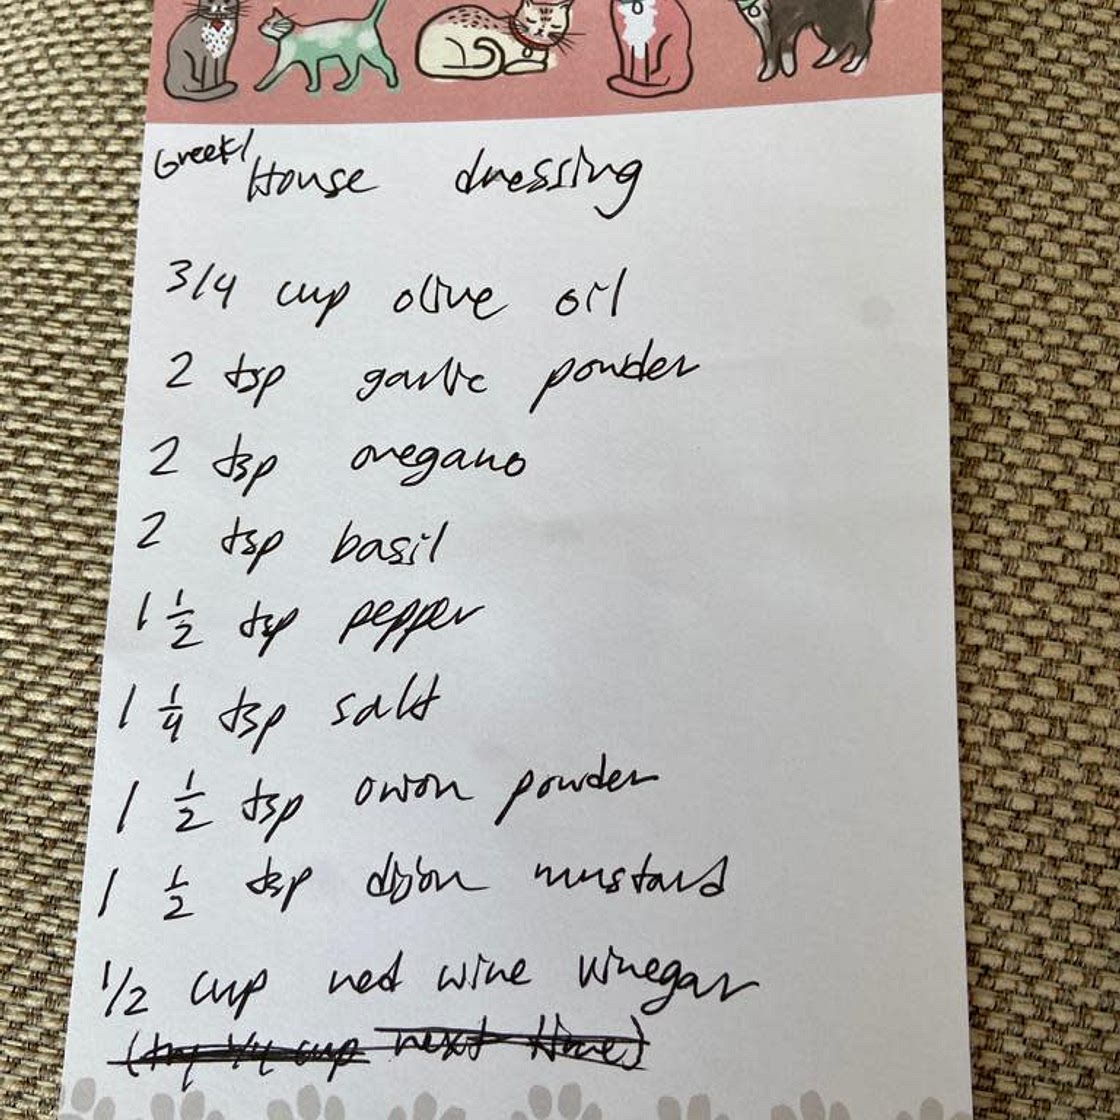 Greek/
House dressing
3/4 cup olive oil
2 tsp garlic powder
2 tsp oregano
2 tsp basil
1 1/2 tsp pepper
1 1/4 tsp salt
1 1/2 tsp onion powder
1 1/2 tsp dijon mustard
1/2 cup red wine vinegar
(try 1/4 cup next time)